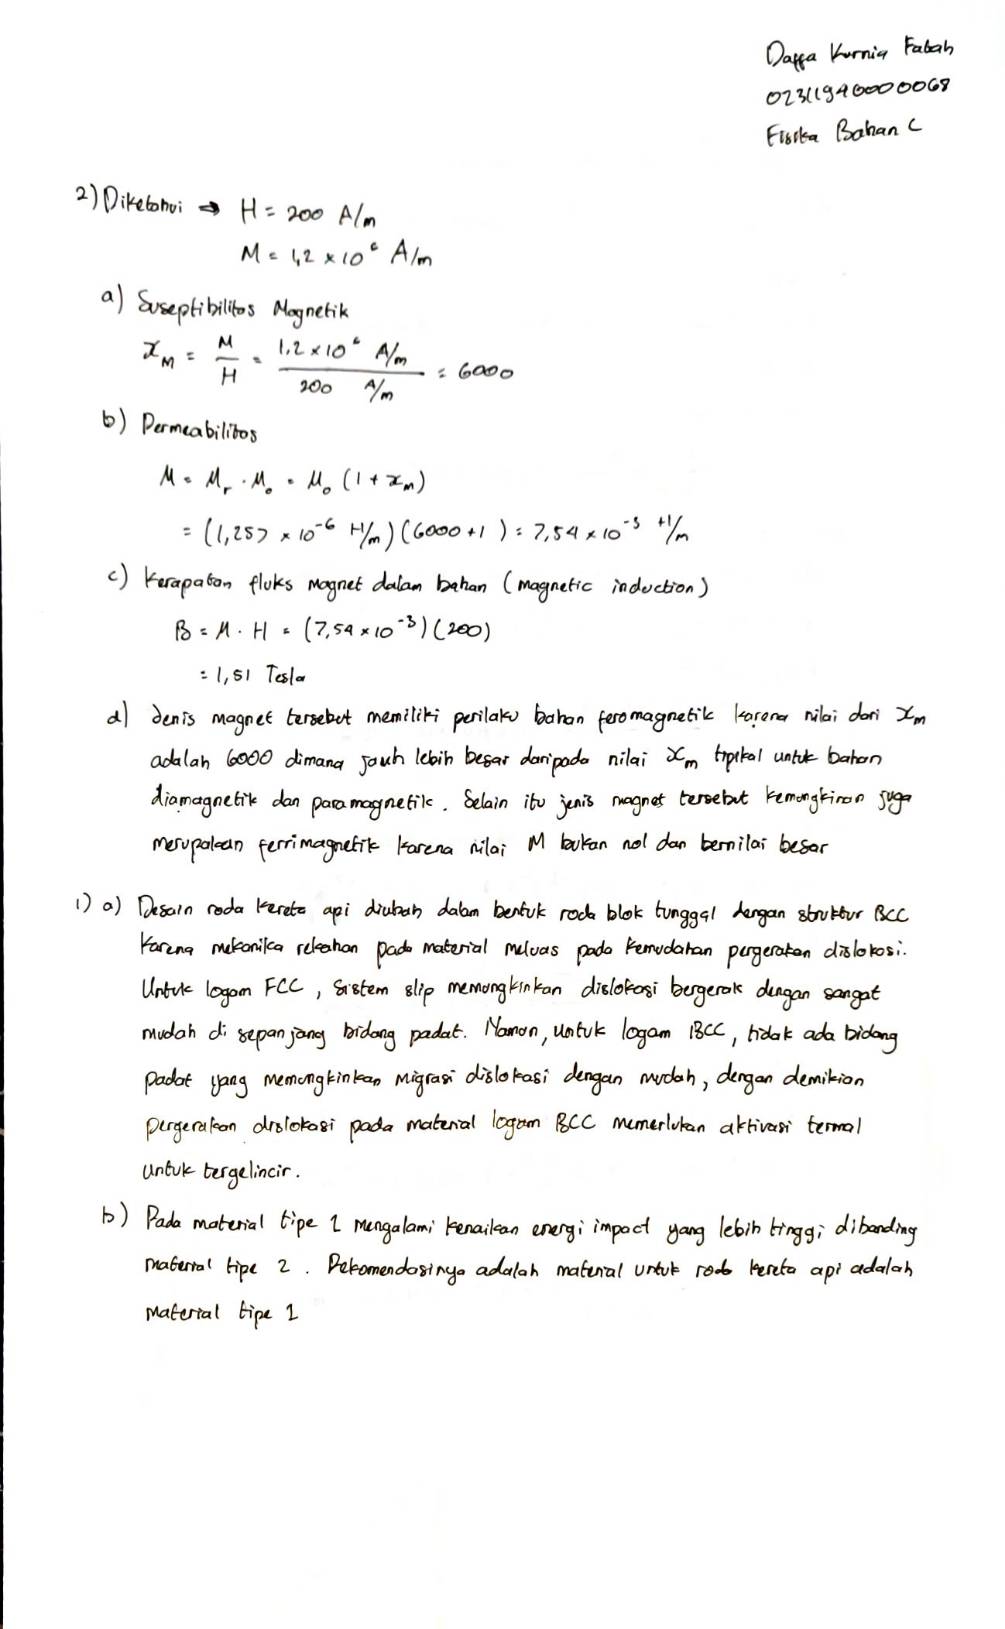 Daffa Kurnia Fatah
02311940000068
Fisika Bahan C
2) Diketahui → H = 200 A/m
M = 1,2 × 10⁶ A/m
a) Suseptibilitas Magnetik
χM = M/H = 1.2 × 10⁶ A/m / 200 A/m = 6000
b) Permeabilitas
μ = μr . μo = μo (1 + χm)
= (1,257 × 10⁻⁶ H/m) (6000 + 1) = 7,54 × 10⁻³ H/m
c) Kerapatan fluks magnet dalam bahan (magnetic induction)
B = μ . H = (7,54 × 10⁻³) (200)
= 1,51 Tesla
d) Jenis magnet tersebut memiliki perilaku bahan feromagnetik karena nilai dari χm
adalah 6000 dimana jauh lebih besar daripada nilai χm tipikal untuk bahan
diamagnetik dan paramagnetik. Selain itu jenis magnet tersebut kemungkinan juga
merupakan ferrimagnetik karena nilai M bukan nol dan bernilai besar
1) a) Desain roda kereta api diubah dalam bentuk roda blok tunggal dengan struktur BCC
karena mekanika rekahan pada material meluas pada kemudahan pergerakan dislokosi.
Untuk logam FCC, sistem slip memungkinkan dislokasi bergerak dengan sangat
mudah di sepanjang bidang padat. Namun, untuk logam BCC, tidak ada bidang
padat yang memungkinkan migrasi dislokasi dengan mudah, dengan demikian
pergerakan dislokasi pada material logam BCC memerlukan aktivasi termal
untuk tergelincir.
b) Pada material tipe 1 mengalami kenaikan energi impact yang lebih tinggi dibanding
material tipe 2. Rekomendasinya adalah material untuk roda kereta api adalah
material tipe 1